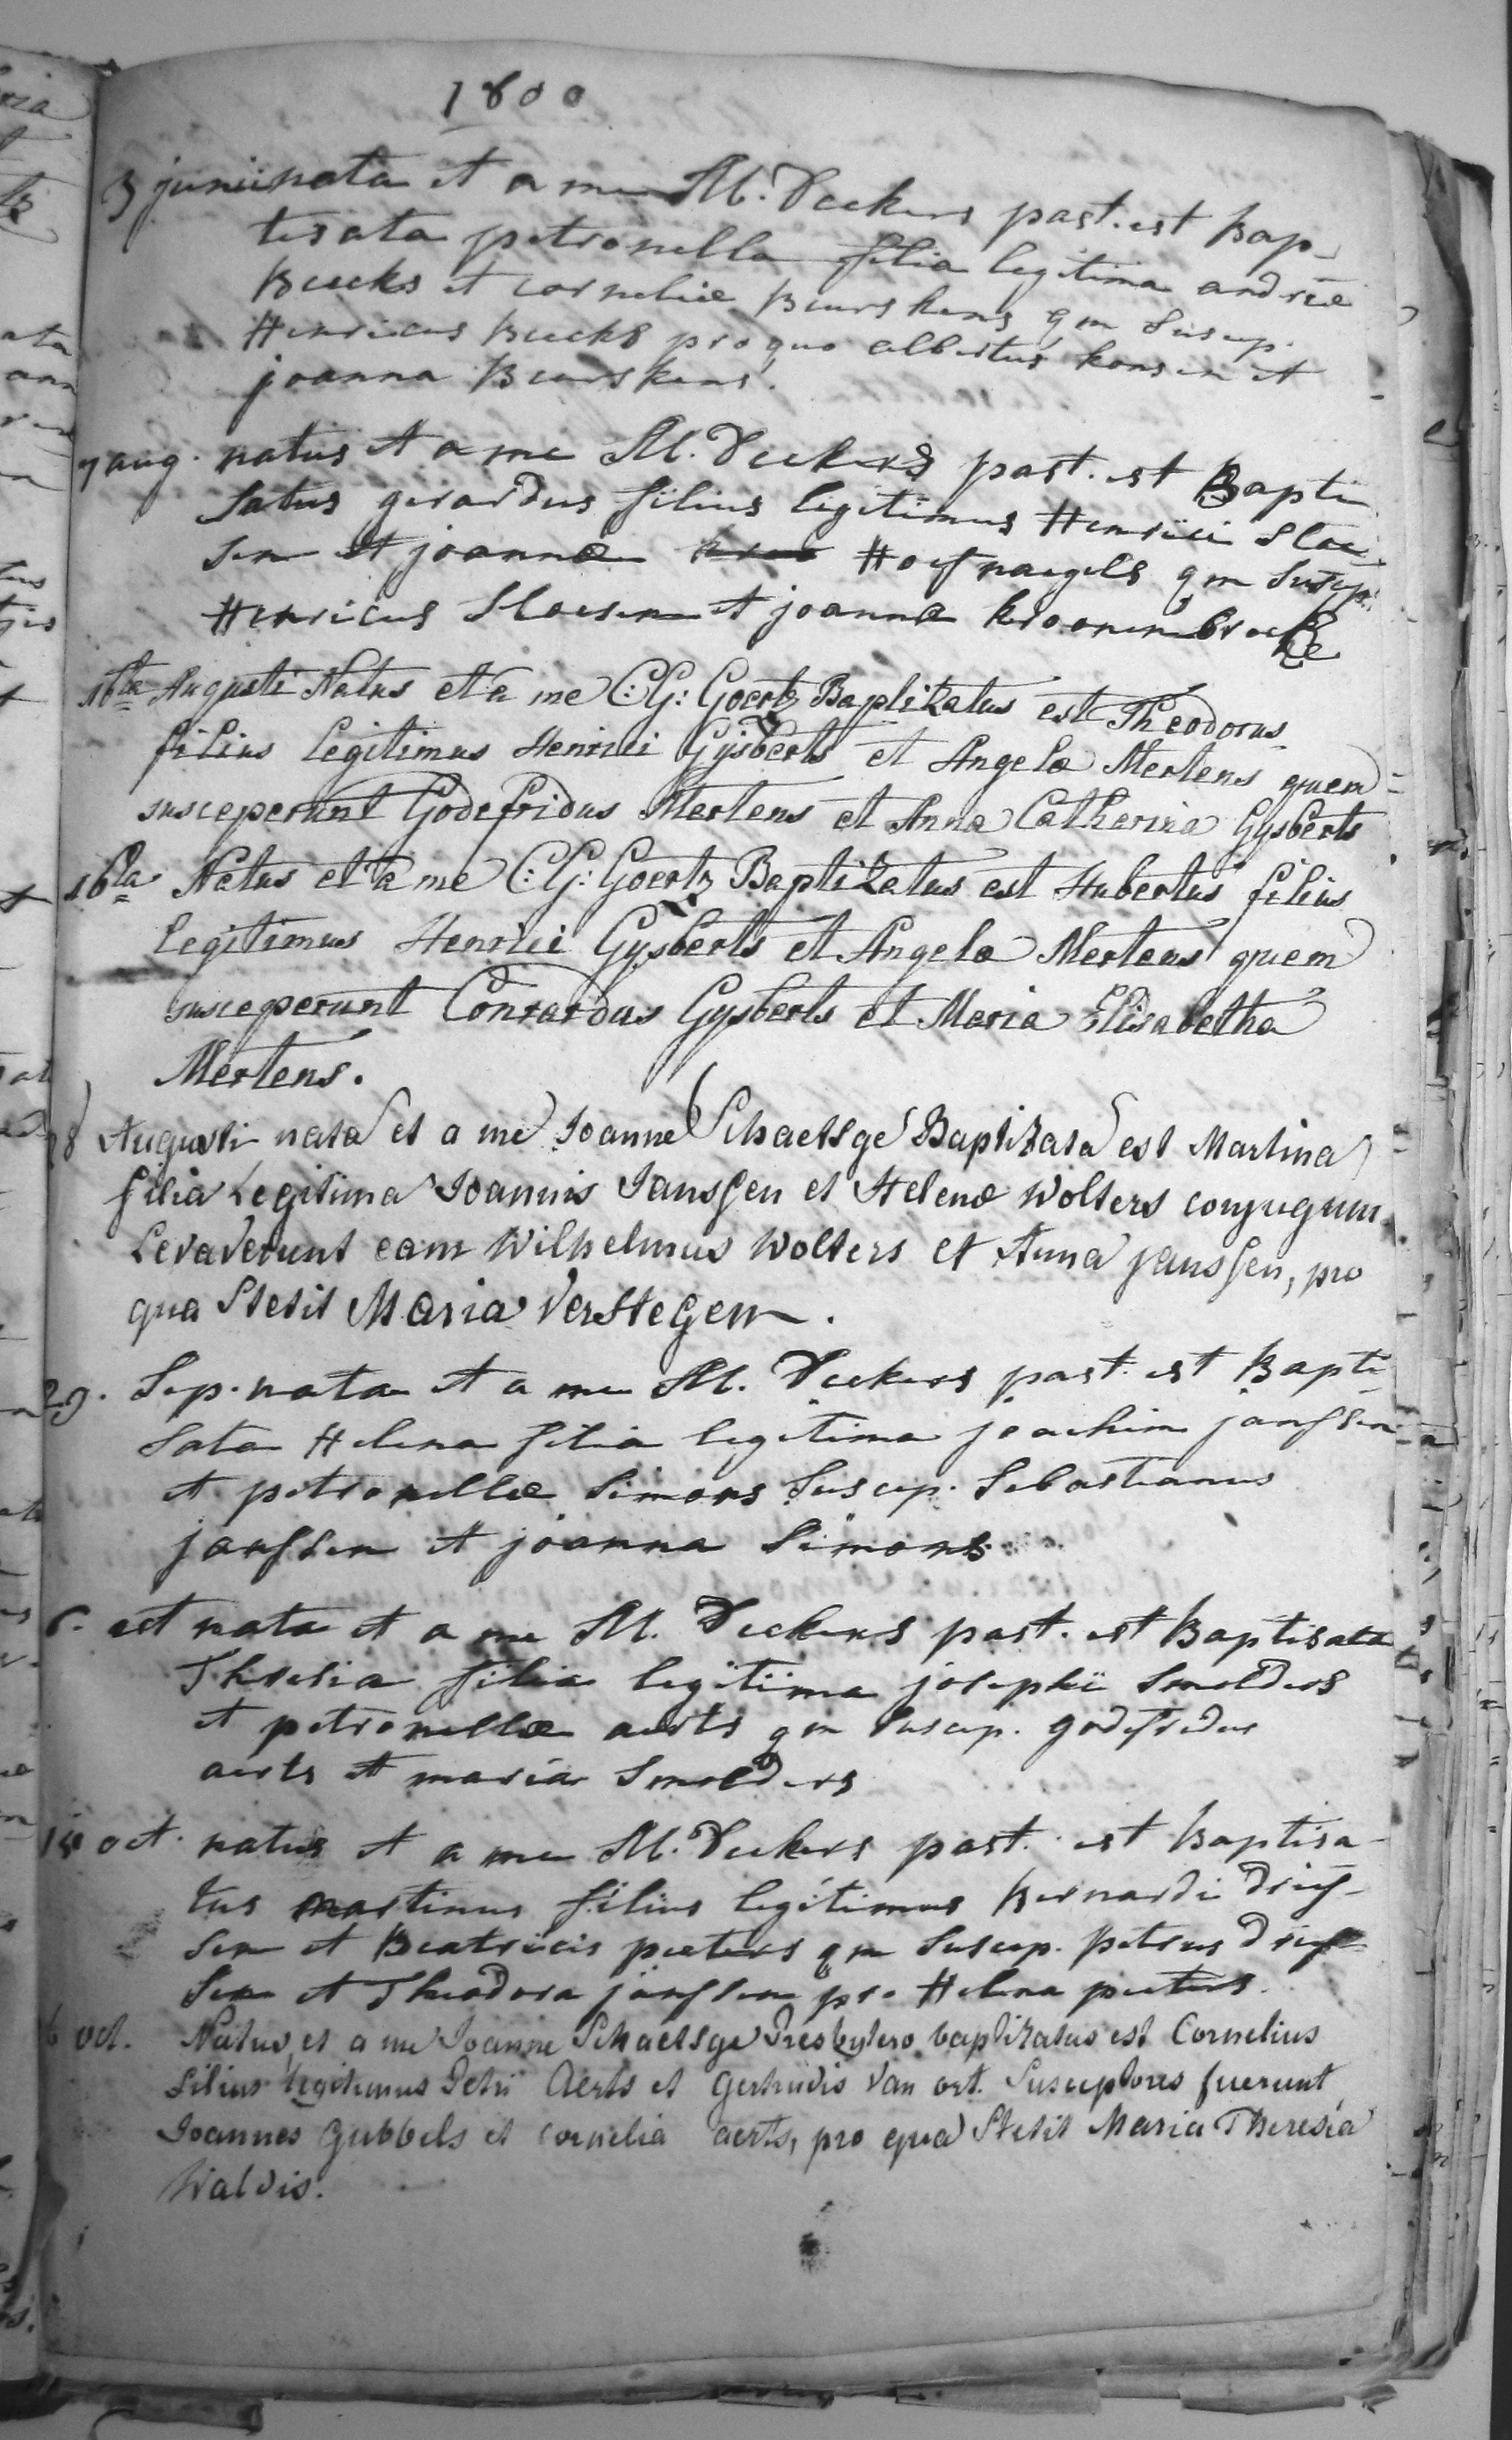 1800
3 junii nata et a me M. Deckers past. est Bap-
tisata petronella filia legitima andreæ
Beecks et corneliæ Beurskens qm suscep.
Henricus Beecks pro quo albertus konsen et
joanna Beurskens.
7 aug. natus et a me M. Deckers past. est Bapti
satus girardus filius legitimus Henrici Sloe
sen et joannæ Hoefnaegels qm suscep.
Henricus Sloesen et joanna kroonenbroeke
16ta Augusti Natus et a me C: G: Goertz Baptizatus est Theodorus
filius legitimus Henrici Gijsberts et Angelæ Mertens quem
susceperunt Godefridus Mertens et Anna Catharina Gysberts
16ta Natus et a me C: G: Goertz Baptizatus est Hubertus filius
legitimus Henrici Gysberts et Angelæ Mertens quem
susceperunt Conrardus Gysberts et Maria Elisabetha
Mertens.
28 Augusti nata et a me Joanne Schaetsge Baptizata est Martina
filia Legitima Joannis Janssen et Helenæ Wolters conjugum
Levaverunt eam Wilhelmus Wolters et Anna Janssen, pro
qua Stetit Maria Verstegen.
29. Sep. nata et a me M. Deckers past. est Bapti
sata Helena filia legitima joachim janssen
et petronellæ Simons suscep. Sebastianus
janssen et joanna Simons
6. oct nata et a me M. Deckers past. est Baptisata
Theresia filia legitiima josephi Smolders
et petronellæ aerts qm suscep. godefridus
aerts et maria Smolders
oct. natus et a me M. Deckers past. est Baptisa-
tus martinus filius legitimus Bernardi dries-
sen et Beatricis peeters qm suscep. petrus dries-
sen et Theodora janssen pro Helena peeters.
6 oct. Natus, et a me Joanne Schaetsge Presbytero baptizatus est Cornelius
filius legitimus Petri Aerts et Gertrudis Van ort. Susceptores fuerunt
Joannes Gubbels et Cornelia aerts, pro qua Stetit Maria Theresia
Walvis.